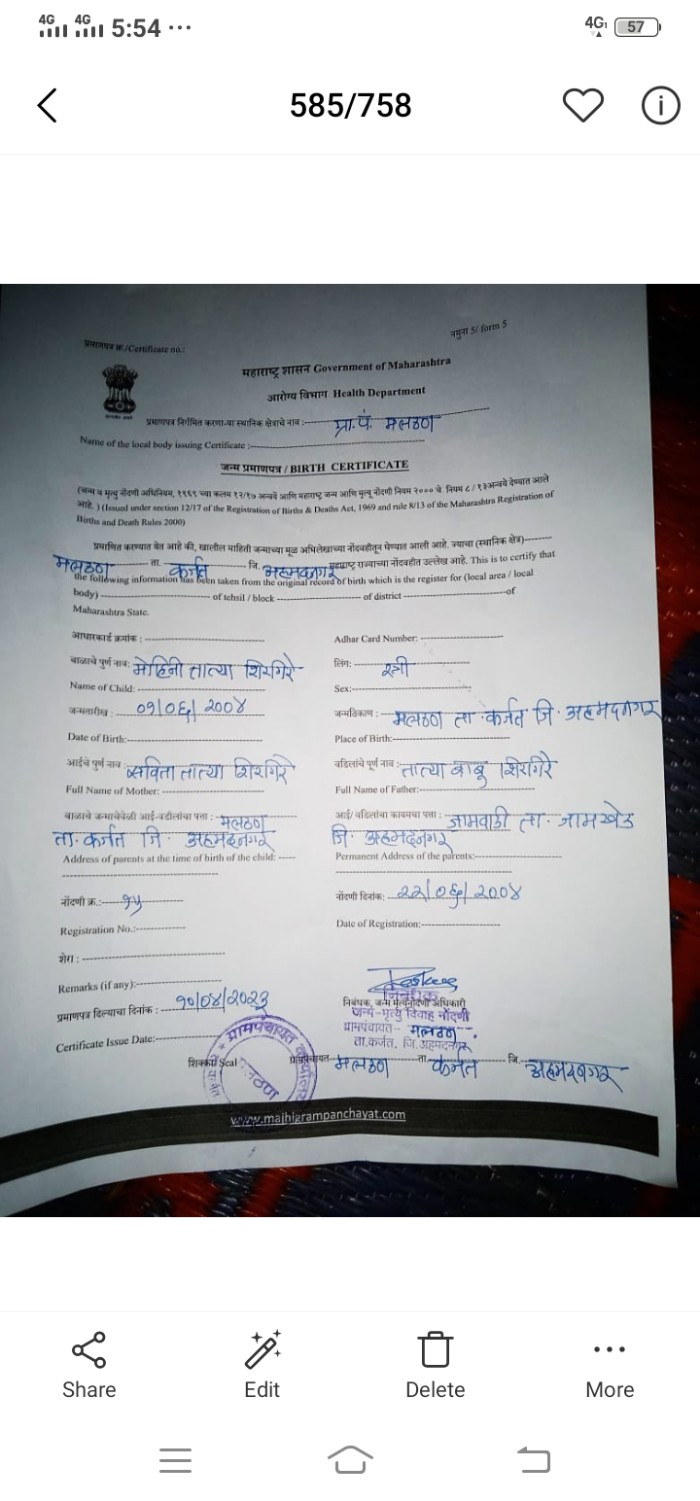 4G 4G 5:54 ... 4G 57
585/758
नमुना 5/ form 5
प्रमाणपत्र क्र./Certificate no.:
महाराष्ट्र शासन Government of Maharashtra
आरोग्य विभाग Health Department
प्रमाणपत्र निर्गमित करणा-या स्थानिक क्षेत्राचे नाव :- ग्रा.पं. मलठण
Name of the local body issuing Certificate :-
जन्म प्रमाणपत्र / BIRTH CERTIFICATE
(जन्म व मृत्यु नोंदणी अधिनियम, १९६९ च्या कलम १२/१७ अन्वये आणि महाराष्ट्र जन्म आणि मृत्यु नोंदणी नियम २००० चे नियम ८/१३अन्वये देण्यात आले
आहे. ) (Issued under section 12/17 of the Registration of Births & Deaths Act, 1969 and rule 8/13 of the Maharashtra Registration of
Births and Death Rules 2000)
प्रमाणित करण्यात येत आहे की, खालील माहिती जन्माच्या मूळ अभिलेखाच्या नोंदवहीतून घेण्यात आली आहे. ज्याचा (स्थानिक क्षेत्र)
मलठण ता. कर्जत जि. अहमदनगर महाराष्ट्र राज्याच्या नोंदवहीत उल्लेख आहे. This is to certify that
the following information has been taken from the original record of birth which is the register for (local area / local
body) of tehsil / block of district of
Maharashtra State.
आधारकार्ड क्रमांक : Adhar Card Number:
बाळाचे पुर्ण नाव: मोहिनी तात्या शिरगिरे लिंग:- स्त्री
Name of Child: Sex:
जन्मतारीख : ०१/०६/२००४ जन्मठिकाण : मलठण ता. कर्जत जि. अहमदनगर
Date of Birth: Place of Birth:
आईचे पुर्ण नाव : सविता तात्या शिरगिरे वडिलांचे पूर्ण नाव : तात्या बाबु शिरगिरे
Full Name of Mother: Full Name of Father:
बाळाचे जन्माचेवेळी आई-वडीलांचा पत्ता : मलठण आई/ वडिलांचा कायमचा पत्ता : जामवाडी ता. जामखेड
ता. कर्जत जि. अहमदनगर जि. अहमदनगर
Address of parents at the time of birth of the child: Permanent Address of the parents:
नोंदणी क्र.: १५ नोंदणी दिनांक: २२/०६/२००४
Registration No.: Date of Registration:
शेरा :
Remarks (if any):
प्रमाणपत्र दिल्याचा दिनांक : १०/०४/२०२३ निबंधक
निबंधक, जन्म मृत्यूनोंदणी अधिकारी
जन्म-मृत्यु विवाह नोंदणी
ग्रामपंचायत- मलठण
Certificate Issue Date: ता.कर्जत, जि.अहमदनगर
शिक्का/ Seal ग्रामपंचायत मलठण ता. कर्जत जि. अहमदनगर
ग्रामपंचायत कार्यालय
मलठण
ता. कर्जत
www.majhigrampanchayat.com
Share Edit Delete More